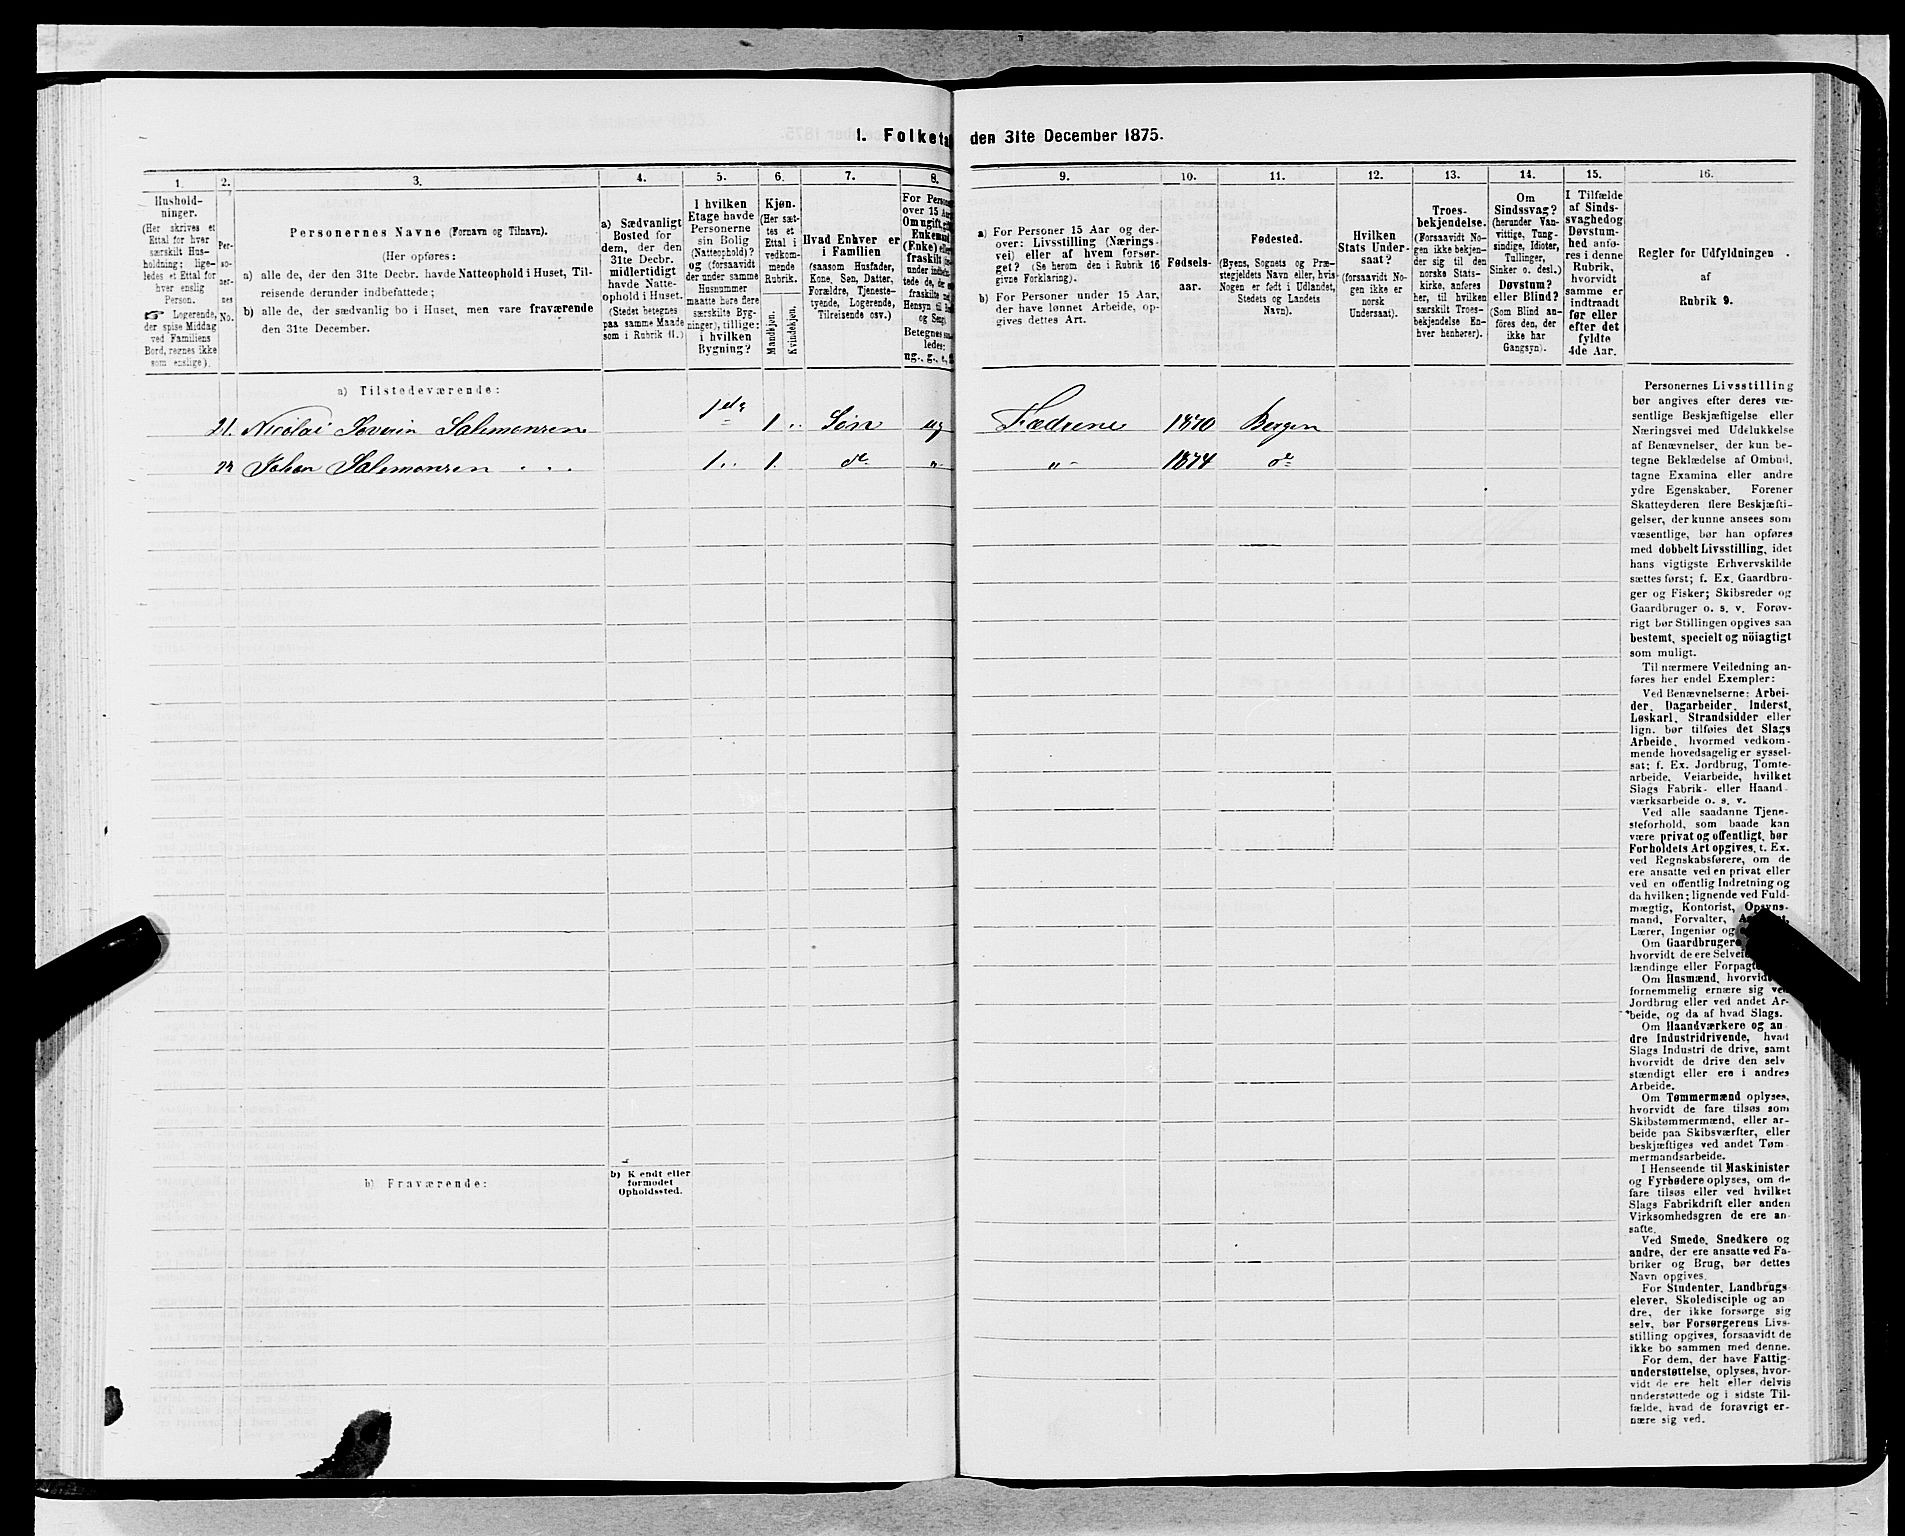 1. Folketal den 31te December 1875.
1. 2. 3. 4. 5. 6. 7. 8. 9. 10. 11. 12. 13. 14. 15. 16.
Hushold-
ninger.
(Her skrives et
Ettal for hver
særskilt Hus-
holdning; lige-
ledes et Ettal for
hver enslig
Person.
☞ Logerende,
der spise Middag
ved Familiens
Bord, regnes ikke
som enslige).
Per-
so-
ner-
nes
No.
Personernes Navne (Fornavn og Tilnavn).
(Her opføres:
a) alle de, der den 31te Decbr. havde Natteophold i Huset, Til-
reisende derunder indbefattede;
b) alle de, der sædvanlig bo i Huset, men vare fraværende
den 31te December.
a) Sædvanligt
Bosted for
dem, der den
31te Decbr.
midlertidigt
havde Natte-
ophold i Huset.
(Stedet betegnes
paa samme Maade
som i Rubrik 11.)
I hvilken
Etage havde
Personerne
sin Bolig
(Natteophold)?
og (forsaavidt
der under samme
Husnummer
maatte høre flere
særskilte Byg-
ninger), tillige:
i hvilken
Bygning?
Kjøn.
(Her sæt-
tes et
Ettal i
vedkom-
mende
Rubrik.
Mandkjøn.
Kvindekjøn.
Hvad Enhver er
i Familien
(saasom Husfader,
Kone, Søn, Datter,
Forældre, Tjeneste-
tyende, Logerende,
Tilreisende osv.)
For Person
over 15 Aar
Om ugift, gift
Enkemand
(Enke) eller
fraskilt
Betegnes saa-
ledes:
ug., g., e.,
a) For Personer 15 Aar og der-
over: Livsstilling (Nærings-
vei) eller af hvem forsør-
get? (Se herom den i Rubrik 16
givne Forklaring).
b) For Personer under 15 Aar,
der have lønnet Arbeide, op-
gives dettes Art.
Fødsels-
aar.
Fødested.
(Byens, Sognets og Præ-
stegjeldets Navn eller, hvis
Nogen er født i Udlandet,
Stedets og Landets
Navn).
Hvilken
Stats Under-
saat?
(forsaavidt No-
gen ikke er
norsk
Undersaat).
Troes-
bekjendelse.
(Forsaavidt No-
gen ikke bekjen-
der sig til den
norske Stats-
kirke, anføres
her, til hvilken
særskilt Troes-
bekjendelse En-
hver henhører).
Om
Sindssvag?
(herunder Van-
vittige, Tung-
sindige, Idioter,
Tullinger,
Sinker o. desl.)
Døvstum?
eller Blind?
(Som Blind an-
føres den, der
ikke har
Gangsyn).
I Tilfælde
af Sinds-
svaghed og
Døvstum-
hed anfø-
res i denne
Rubrik,
hvorvidt
samme er
indtraadt
før eller
efter det
fyldte
4de Aar.
Regler for Udfyldningen
af
Rubrik 9.
a) Tilstedeværende:
21. Nicolai Soverin Salemonsen 1ste 1 Søn ug Fædrene 1870 Bergen
22 Johan Salemonsen 1 1. do " " 1874 do
b) Fraværende:
b) Kjendt eller
formodet
Opholdssted.
Personernes Livsstilling
bør angives efter deres væ-
sentlige Beskjæftigelse eller
Næringsvei med Udelukkelse
af Benævnelser, der kun be-
tegne Beklædelse af Ombud,
tagne Examina eller andre
ydre Egenskaber. Forener
Skatteyderen flere Beskjæfti-
gelser, der kunne ansees som
væsentlige, bør han opføres
med dobbelt Livsstilling, idet
hans vigtigste Erhvervskilde
sættes først; f. Ex. Gaardbru-
ger og Fisker; Skibsreder og
Gaardbruger o. s. v. Forøv-
rigt bør Stillingen opgives saa
bestemt, specielt og nöiagtigt
som muligt.
Til nærmere Veiledning an-
føres her endel Exempler:
Ved Benævnelserne: Arbei-
der, Dagarbeider, Inderst,
Løskarl, Strandsidder eller
lign. bør tilføies det Slags
Arbeide, hvormed vedkom-
mende hovedsagelig er syssel-
sat; f. Ex. Jordbrug, Tomte-
arbeide, Veiarbeide, hvilket
Slags Fabrik- eller Haand-
værksarbeide o. s. v.
Ved alle saadanne Tjene-
steforhold, som baade kan
være privat og offentligt, bør
Forholdets Art opgives, f. Ex.
ved Regnskabsførere, om de
ere ansatte ved en privat eller
ved en offentlig Indretning og
da hvilken; lignende ved Fuld-
mægtig, Kontorist, Opsyns-
mand, Forvalter,
Lærer, Ingeniør og
Om Gaardbrugere
hvorvidt de ere
lændinge eller
Om Husmænd, hvorvidt
fornemmelig ernære sig ved
Jordbrug eller ved andet Ar-
beide, og da af hvad Slags.
Om Haandværkere og an
dre Industridrivende, hvad
Slags Industri de drive, samt
hvorvidt de drive den selv
stændigt eller ere i andres
Arbeide.
Om Tømmermænd oplyses,
hvorvidt de fare tilsøs som
Skibstømmermænd, eller ar-
beide paa Skibsværfter, eller
beskjæftiges ved andet Tøm-
mermandsarbeide.
I Henseende til Maskinister
og Fyrbødere oplyses, om de
fare tilsøs eller ved hvilket
Slags Fabrikdrift eller anden
Virksomhedsgren de ere an-
satte.
Ved Smede, Snedkere og
andre, der ere ansatte ved Fa-
briker og Brug, bør dettes
Navn opgives.
For Studenter, Landbrugs
elever, Skoledisciple og an
dre, der ikke forsørge sig
selv, bør Forsørgerens Livs-
stilling opgives, forsaavidt de
ikke bo sammen med denne.
For dem, der have Fattig-
understøttelse, oplyses, hvor-
vidt de ere helt eller delvis
understøttede og i sidste Til-
fælde, hvad de forøvrigt er-
nære sig ved.